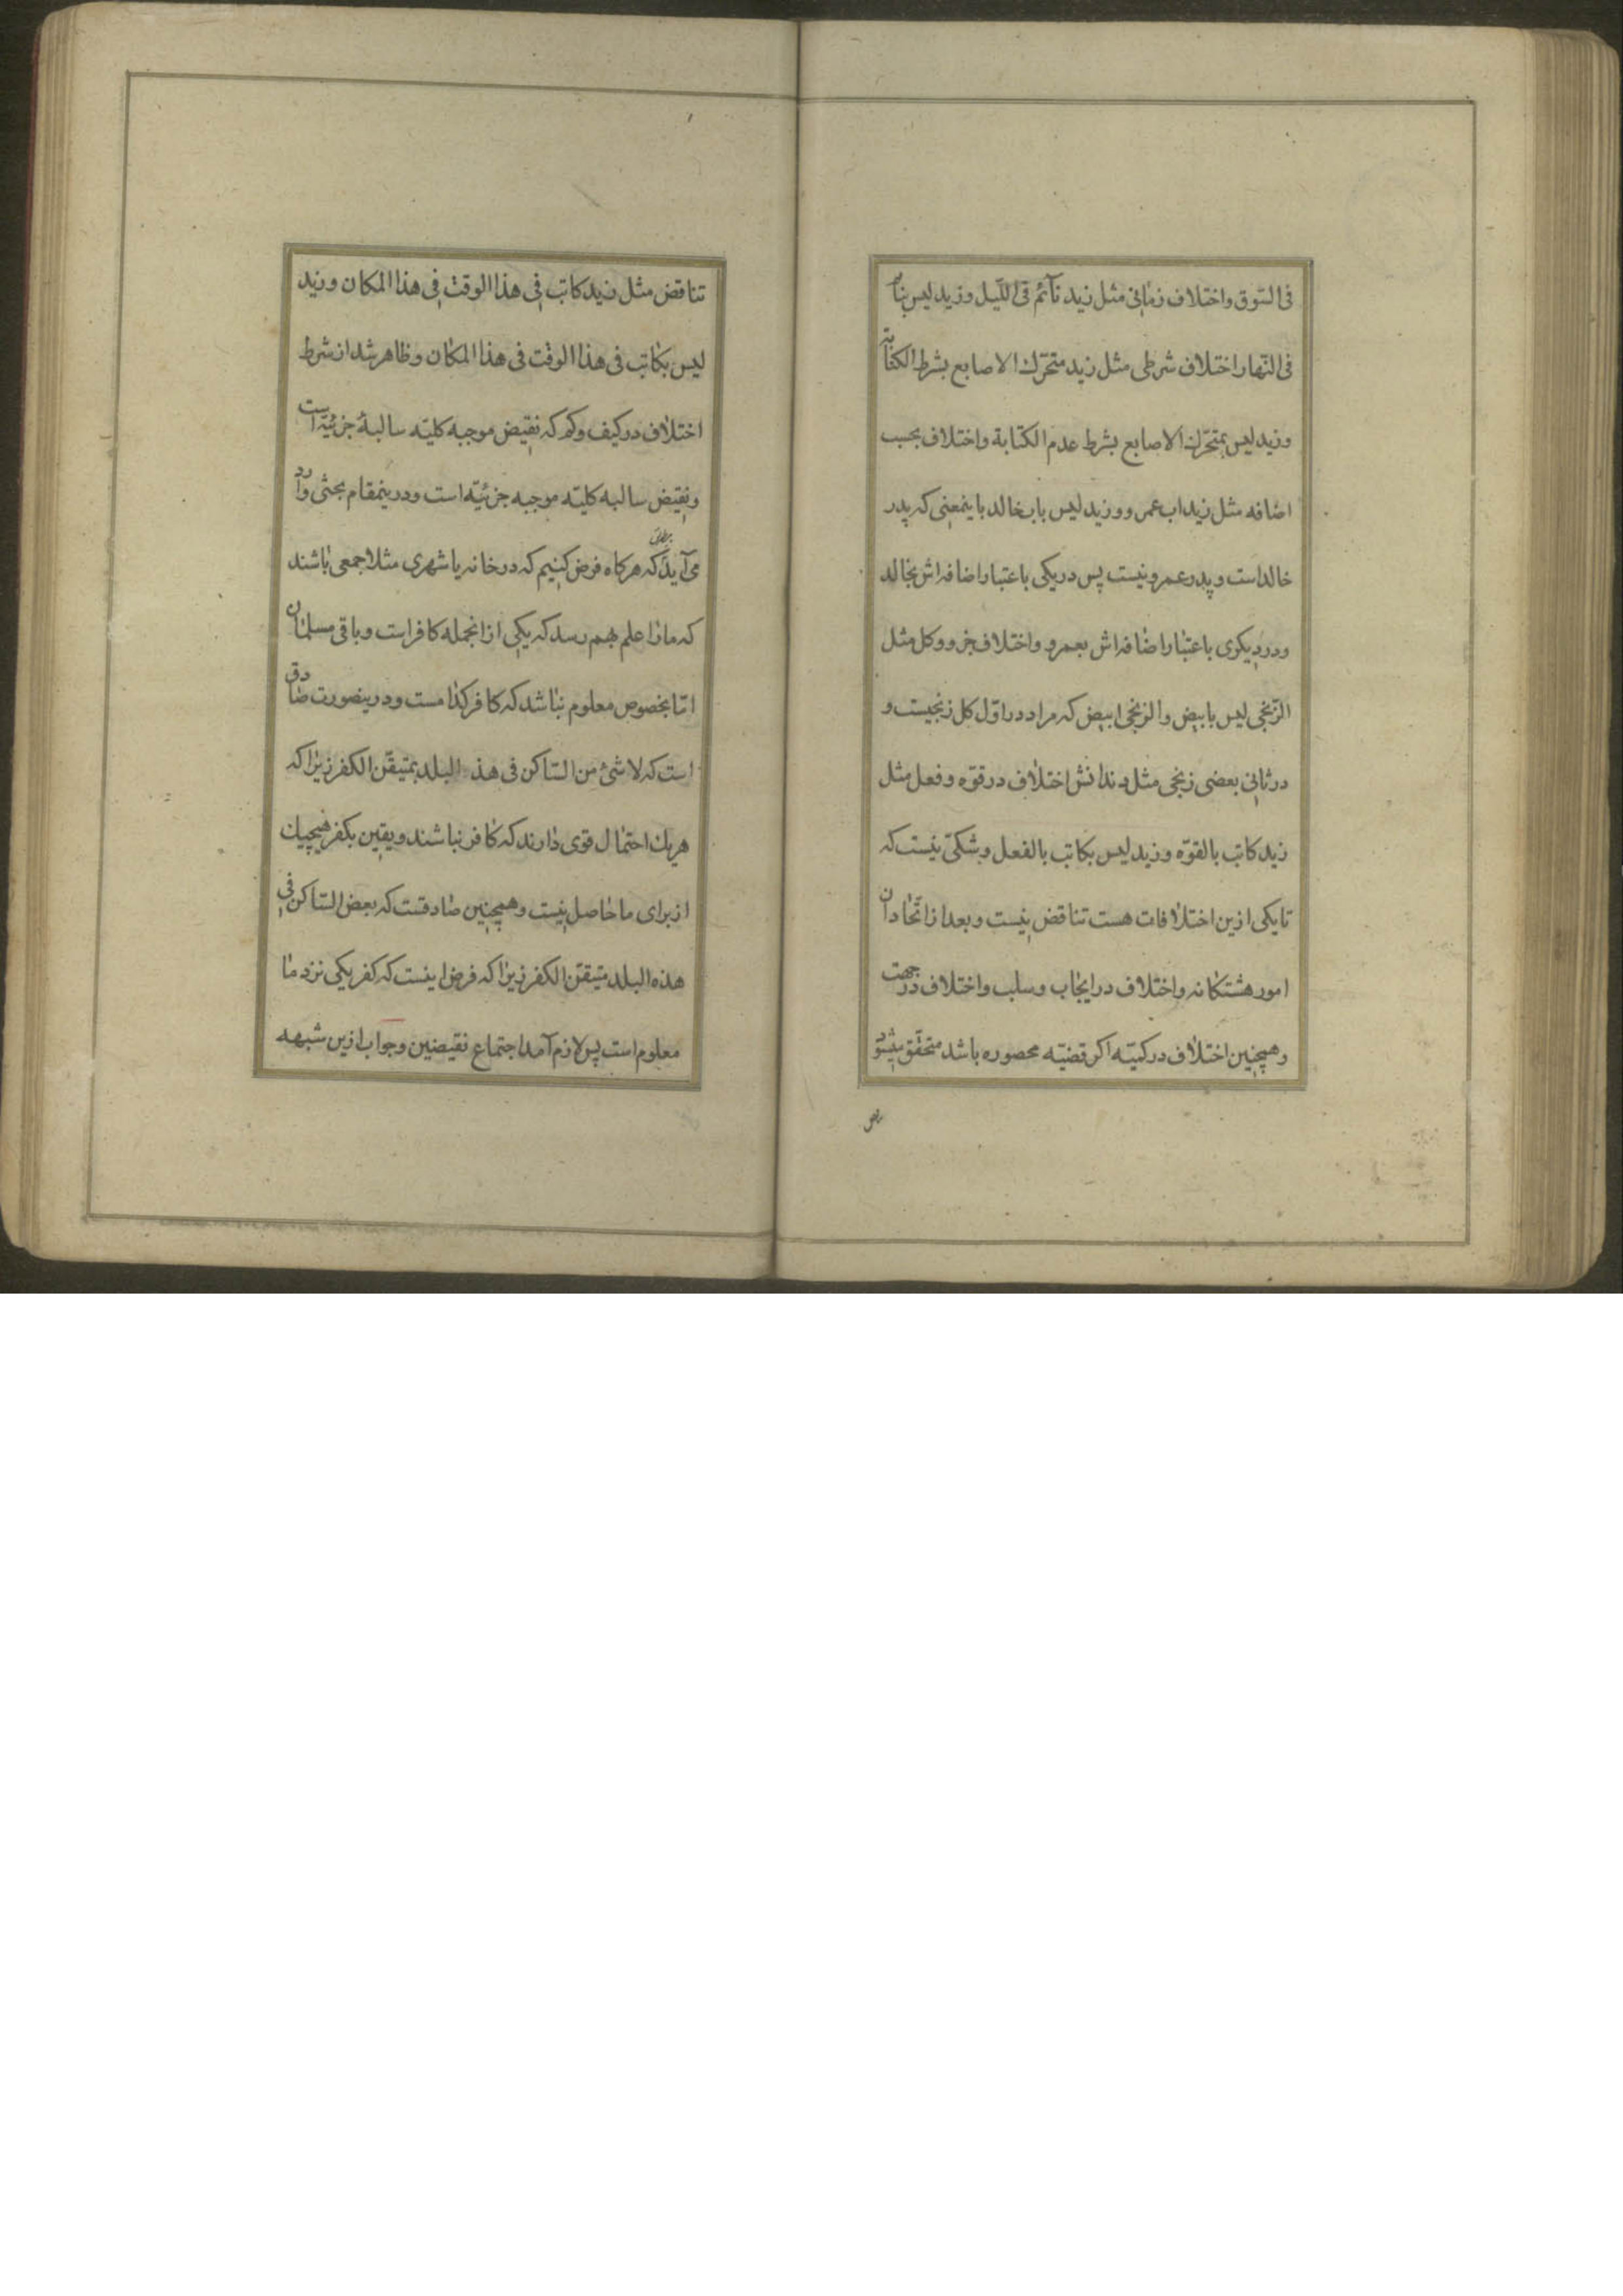 فی السّوق واختلاف زمانی مثل زید نآئم فی اللّیل وزید لیس بنائم
فی النّهار واختلاف شرطی مثل زید متحرّك الاصابع بشرط الکتابة
وزید لیس بمتحرّك الاصابع بشرط عدم الکتابة واختلاف بحسب
اضافه مثل زید اب عمرو وزید لیس باب خالد باینمعنی که پدر
خالد است وپدر عمرو نیست پس در یکی باعتبار اضافه اش بخالد
ودر دیکری باعتبار اضافه اش بعمرو واختلاف جزو وکل مثل
الزّنجی لیس بابیض والزنجی ابیض که مراد در اوّل کل زنجیست و
در ثانی بعضی زنجی مثل دندانش اختلاف در قوّه وفعل مثل
زید کاتب بالقوّه وزید لیس بکاتب بالفعل وشکّی نیست که
تا یکی ازین اختلافات هست تناقض نیست وبعد از اتّحاد ان
امور هشتکانه واختلاف در ایجاب وسلب واختلاف در جهت
وهمچنین اختلاف در کمیّته اکر قضیّه محصوره باشد متحقق میشود
تناقض مثل زید کاتب فی هذا الوقت فی هذا المکان وزید
لیس بکاتب فی هذا الوقت فی هذا المکان وظاهر شد از شرط
اختلاف در کیف وکم که نقیض موجبه کلیّه سالبۀ جزئیّه است
ونقیض سالبه کلیّه موجبه جزئیّه است ودرینمقام بحثی وارد
می آید که هرکاه فرض کنیم که در خانه یا شهری مثلا جمعی باشند
که مارا علم بهم رسد که یکی از انجمله کافر است وباقی مسلمان
امّا بخصوص معلوم نباشد که کافر کدامست ودرینصورت صادق
است که لا شئ من السّاکن فی هذه البلد بمتیقّن الکفر زیراکه
هریك احتمال قوی دارند که کافر نباشند ویقین بکفر هیچیك
از برای ما حاصل نیست وهمچنین صادقست که بعض السّاکن فی
هذه البلد متیقّن الکفر زیراکه فرض اینست که کفر یکی نزد ما
معلوم است پس لازم آمد اجتماع نقیضین وجواب ازین شبهه